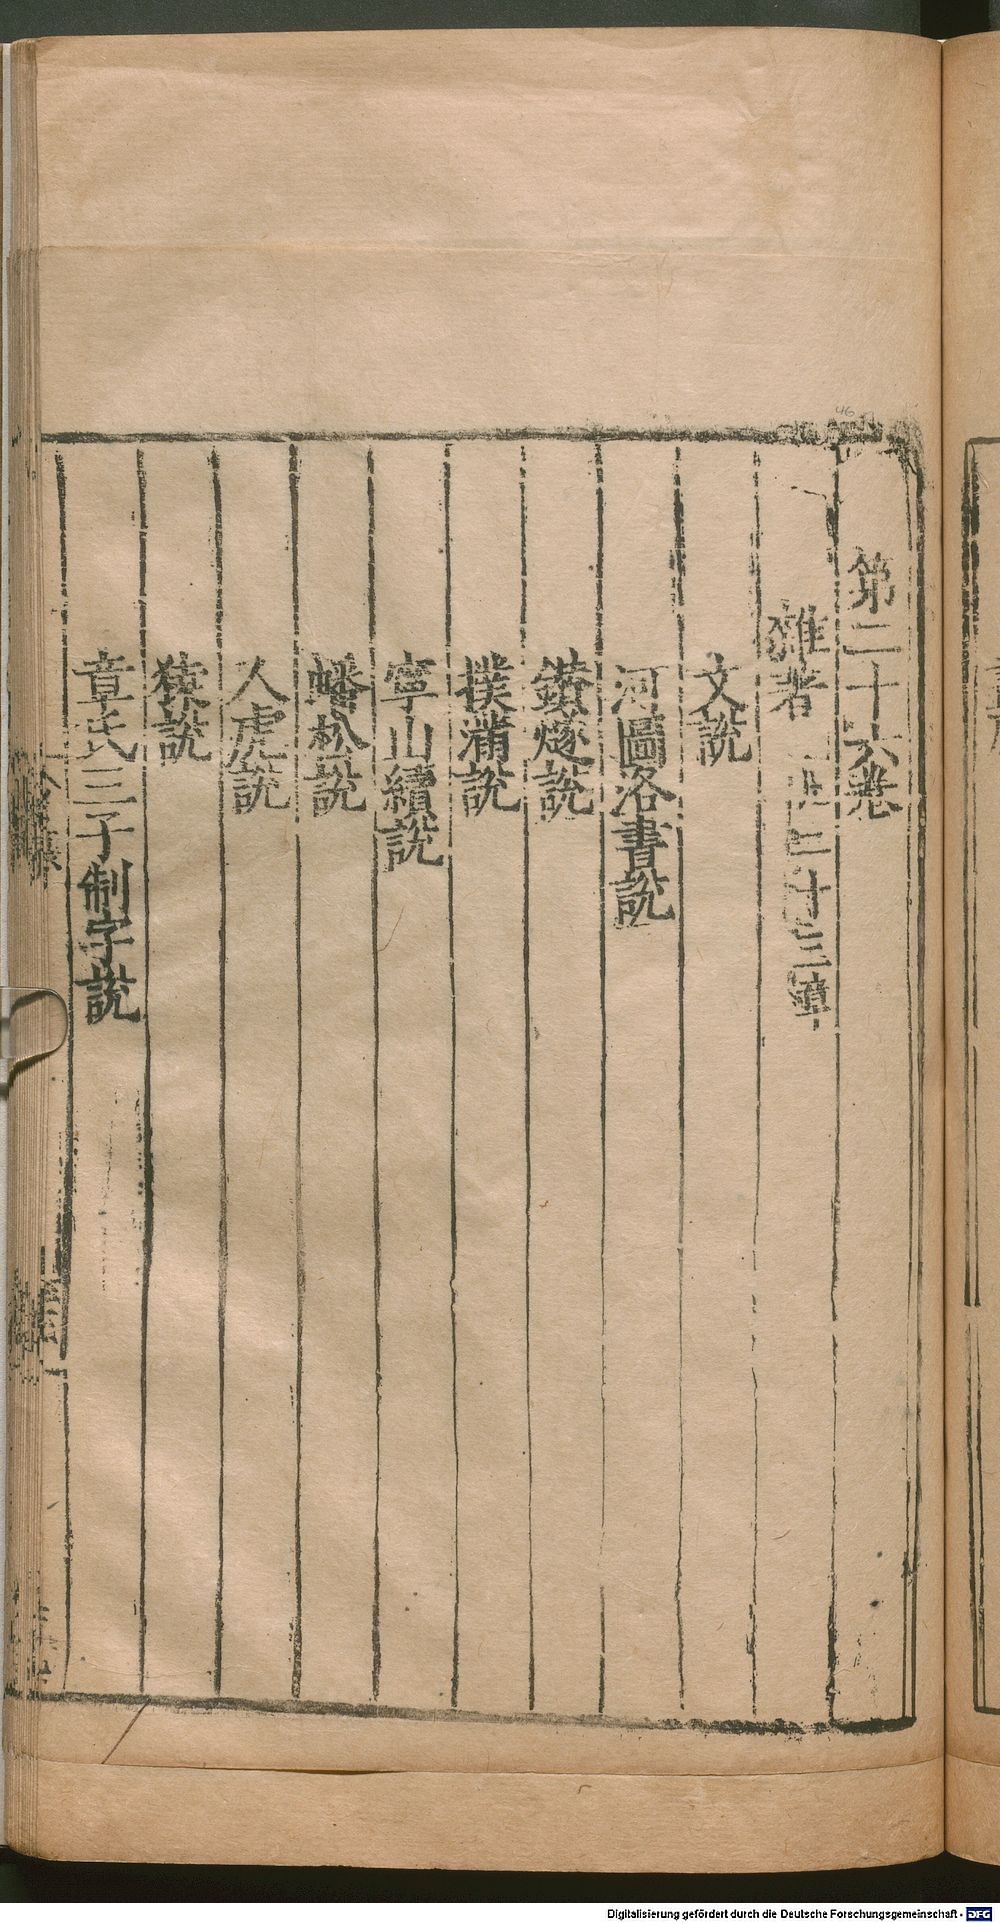 第二十六卷
雜著 二十三章
文說
河圖洛書說
鑽燧說
撲滿說
寧山續說
蟠松說
人虎說
猿說
章氏三子制字說
46
Digitalisierung gefördert durch die Deutsche Forschungsgemeinschaft - DFG